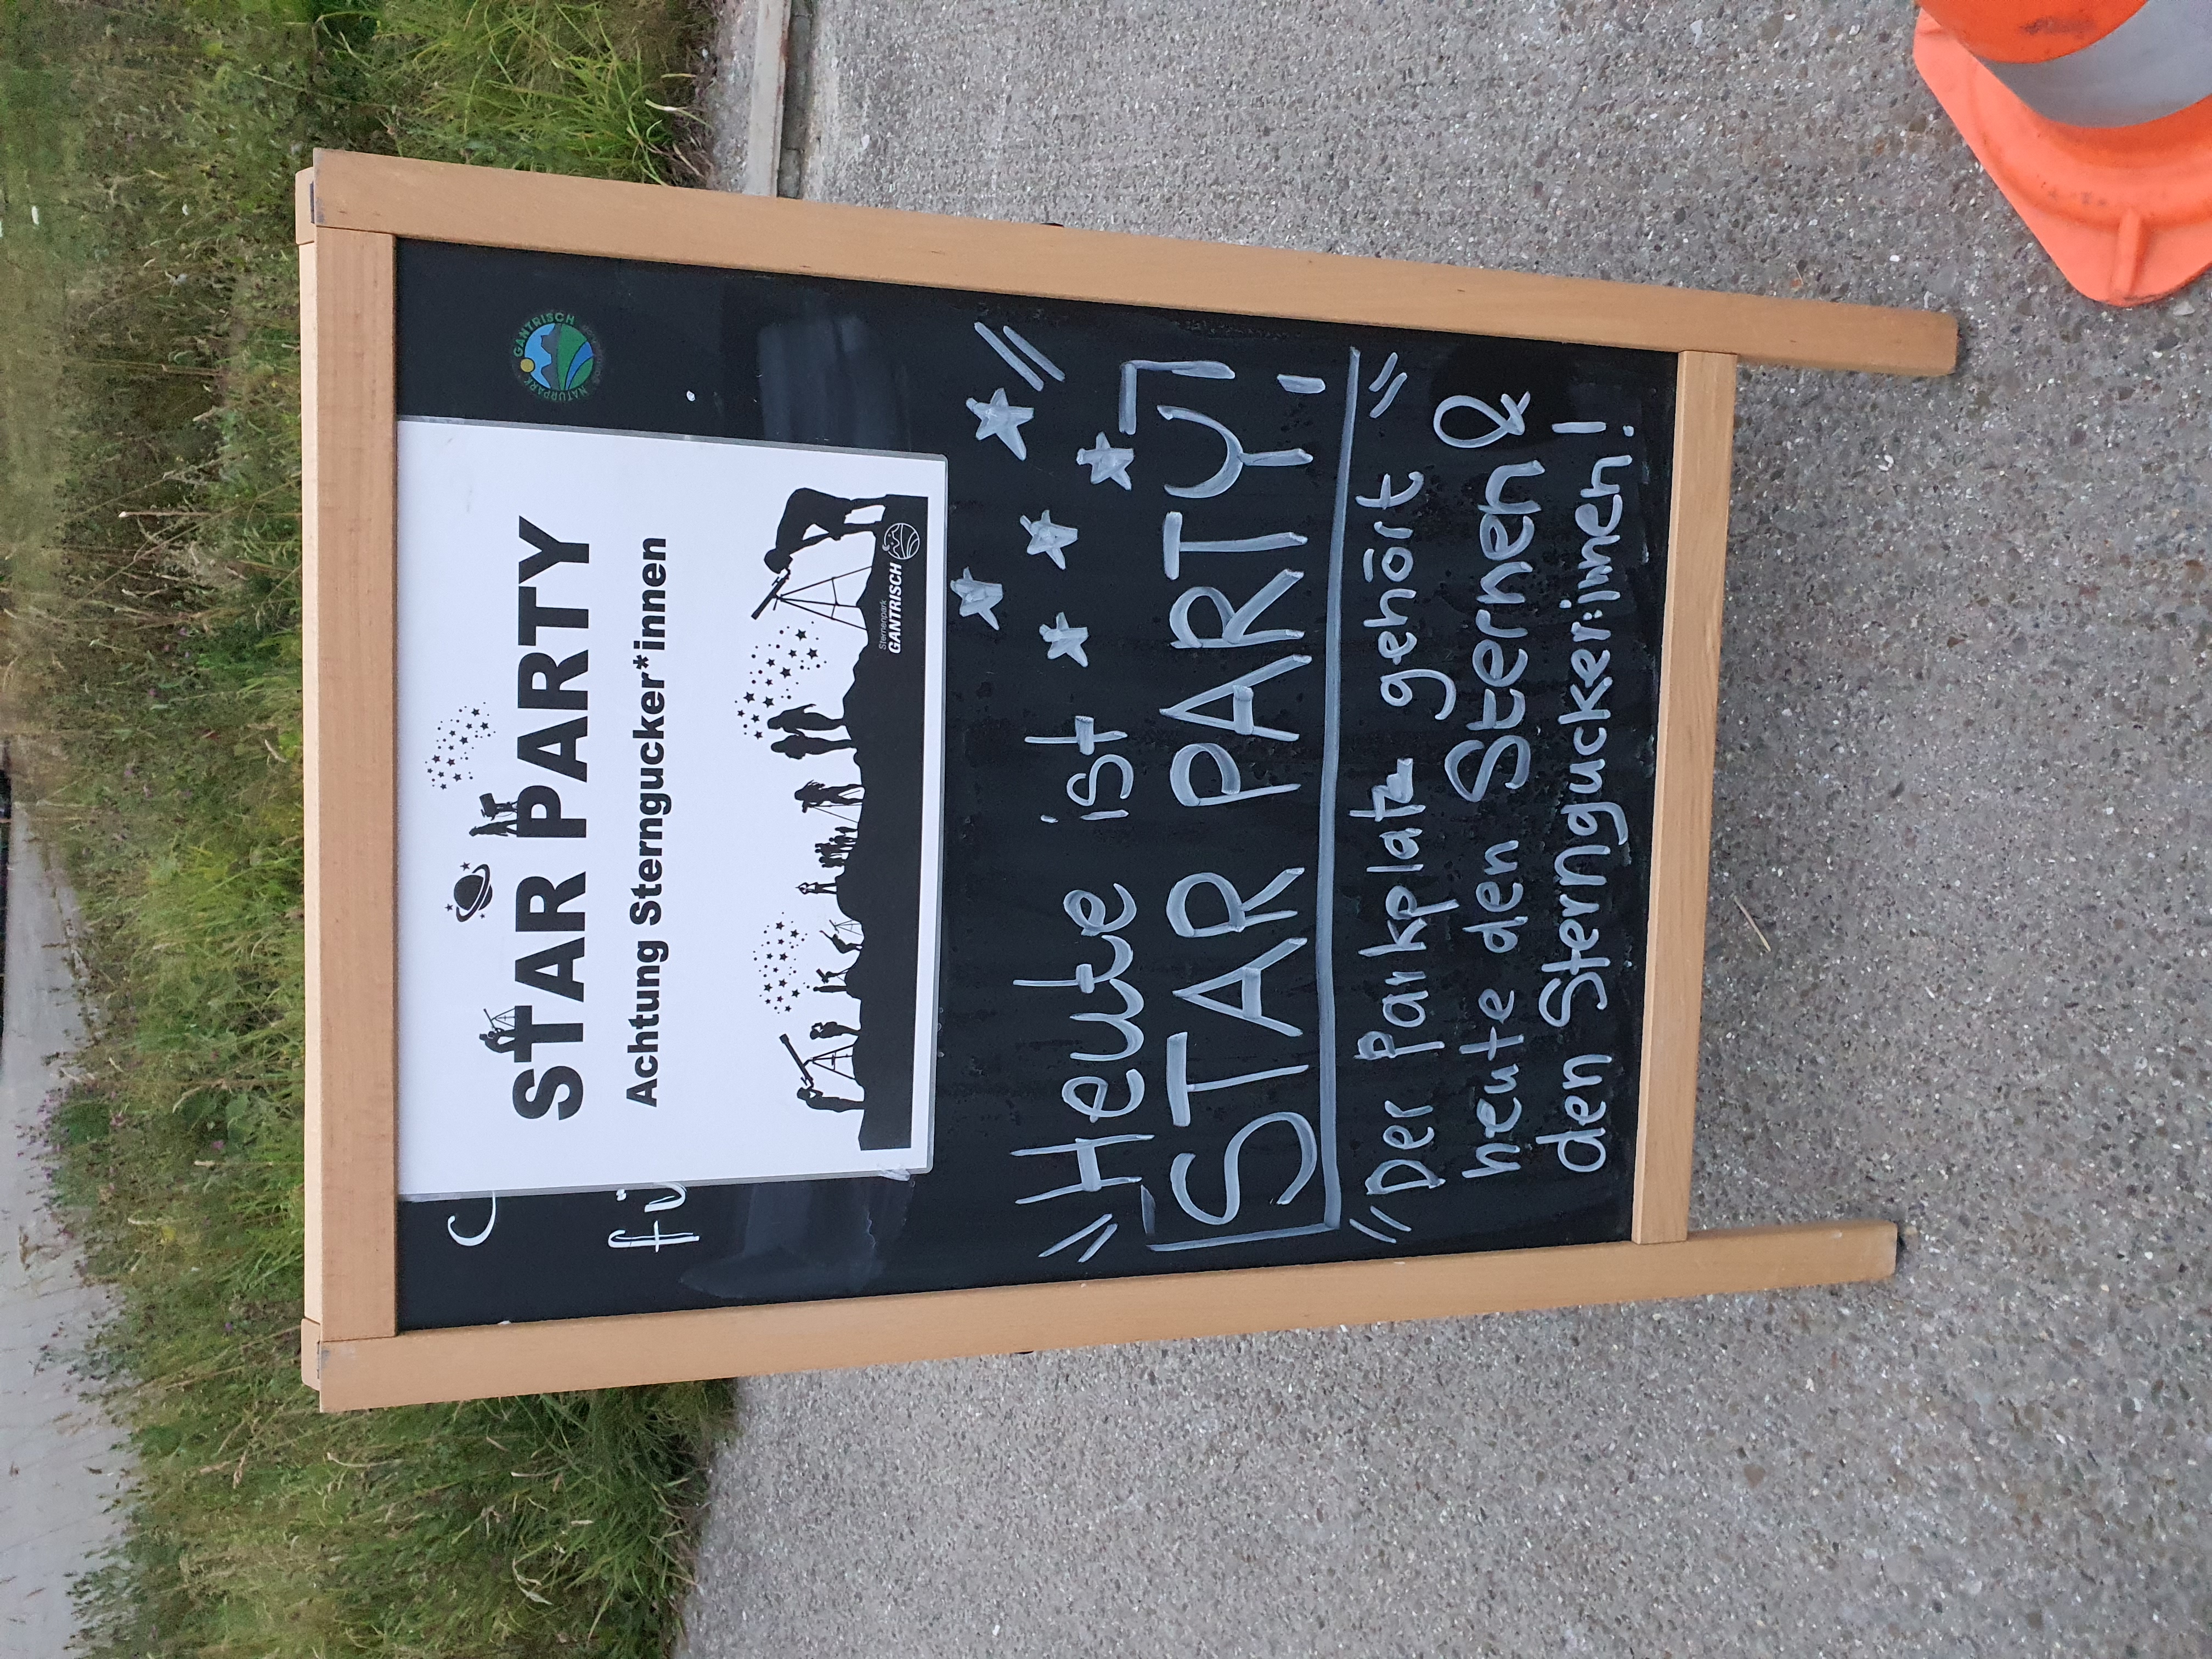 NATURPARK GANTRISCH
STAR PARTY
Achtung Sterngucker*innen
Sternenpark
GANTRISCH
fü
Heute ist
STAR PARTY!
Der Parkplatz gehört
heute den Sternen &
den Sterngucker:innen!